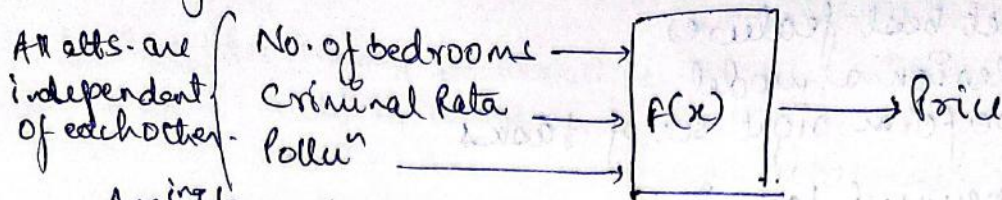 All atts. are
independent
of each other.
No. of bedrooms
Criminal Rata
Polluⁿ
F(x)
Price
ing